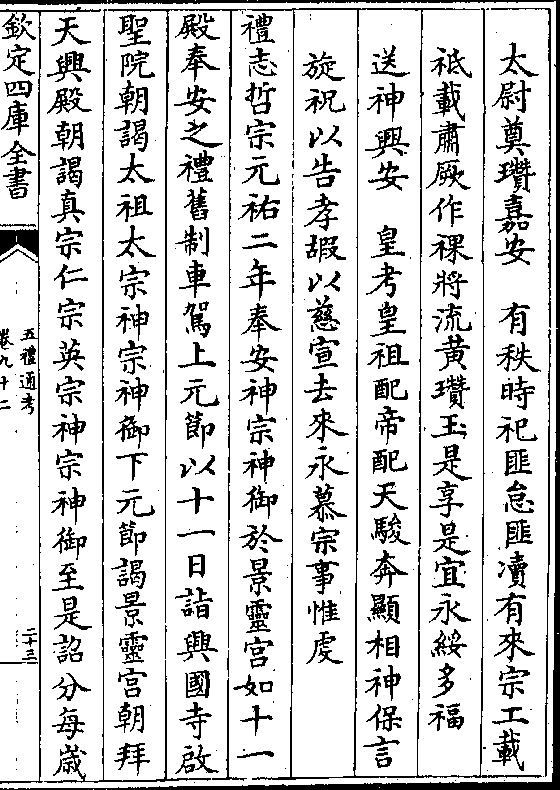 太尉奠瓚嘉安　有秩時祀匪怠匪瀆有來宗工載
祗載肅厥作祼將流黃瓚玉是享是宜永綏多福
送神興安　皇考皇祖配帝配天駿奔顯相神保言
旋祝以告孝嘏以慈宣去來永慕宗事惟虔
禮志哲宗元祐二年奉安神宗神御於景靈宮如十一
殿奉安之禮舊制車駕上元節以十一日詣興國寺啟
聖院朝謁太祖太宗神宗神御下元節謁景靈宮朝拜
天興殿朝謁真宗仁宗英宗神宗神御至是詔分每歲
欽定四庫全書
五禮通考
卷九十二
二十三